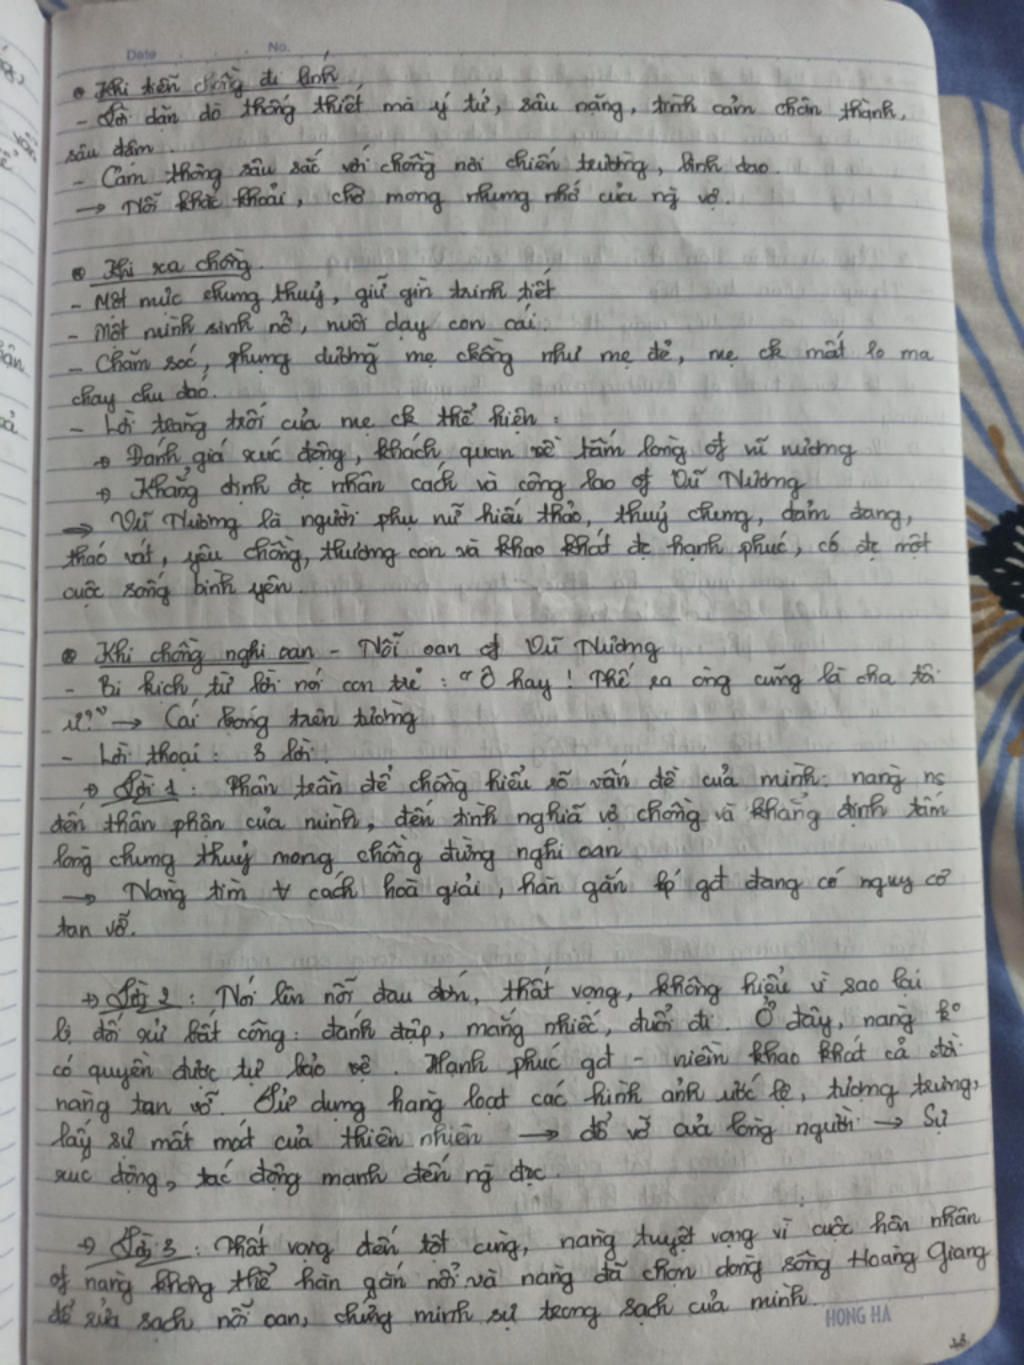 Date No.
• Khi tiễn chồng đi lính
- Lời dặn dò thống thiết mà ý tứ, sâu nặng, tình cảm chân thành,
sâu đậm.
- Cảm thông sâu sắc với chồng nơi chiến trường, binh đao.
→ Nỗi khắc khoải, chờ mong nhung nhớ của ng vợ.
• Khi xa chồng.
- Một mực chung thuỷ, giữ gìn trinh tiết
- Một mình sinh nở, nuôi dạy con cái.
- Chăm sóc, phụng dưỡng mẹ chồng như mẹ đẻ, mẹ ck mất lo ma
chay chu đáo.
- Lời trăng trối của mẹ ck thể hiện:
→ Đánh giá xúc động, khách quan về tấm lòng of vũ nương
→ Khẳng định đc nhân cách và công lao of Vũ Nương
→ Vũ Nương là người phụ nữ hiếu thảo, thuỷ chung, đảm đang,
tháo vát, yêu chồng, thương con và khao khát đc hạnh phúc, có đc một
cuộc sống bình yên.
• Khi chồng nghi oan - Nỗi oan of Vũ Nương
- Bi kịch từ lời nói con trẻ: "Ô hay! Thế ra ông cũng là cha tôi
ư?" → Cái bóng trên tường
- Lời thoại: 3 lời.
→ Lời 1: Phân trần để chồng hiểu rõ vấn đề của mình: nàng ns
đến thân phận của mình, đến tình nghĩa vợ chồng và khẳng định tấm
lòng chung thuỷ mong chồng đừng nghi oan
→ Nàng tìm ∀ cách hoà giải, hàn gắn hp gđ đang có nguy cơ
tan vỡ.
→ Lời 2: Nói lên nỗi đau đớn, thất vọng, không hiểu vì sao lại
bị đối xử bất công: đánh đập, mắng nhiếc, đuổi đi. Ở đây, nàng ko
có quyền được tự bảo vệ. Hạnh phúc gđ - niềm khao khát cả đời
nàng tan vỡ. Sử dụng hàng loạt các hình ảnh ước lệ, tượng trưng,
lấy sự mất mát của thiên nhiên → đổ vỡ của lòng người → Sự
xúc động, tác động mạnh đến ng đọc.
→ Lời 3: Thất vọng đến tột cùng, nàng tuyệt vọng vì cuộc hôn nhân
of nàng không thể hàn gắn nổi và nàng đã chọn dòng sông Hoàng Giang
để rửa sạch nỗi oan, chứng minh sự trong sạch của mình.
HONG HA